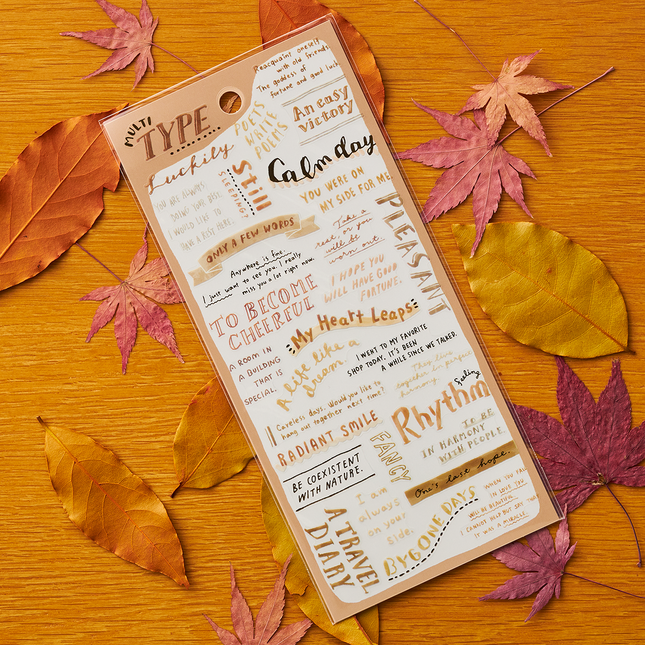 MULTI
TYPE
Reacquaint oneself
with old friends.
The goddess of
fortune and good luck.
POETS
WRITE
POEMS
An easy
victory
Luckily
Still
SLEEPING?
Calm day
YOU ARE ALWAYS
DOING YOUR BEST.
I WOULD LIKE TO
TAKE A REST HERE.
YOU WERE ON
MY SIDE FOR ME
PLEASANT
ONLY A FEW WORDS
Take a
rest, or you
will be
worn out.
Anywhere is fine.
I just want to see you. I really
miss you a lot right now.
I HOPE YOU
WILL HAVE GOOD
FORTUNE.
TO BECOME
CHEERFUL
My Heart Leaps
A ROOM IN
A BUILDING
THAT IS
SPECIAL.
A life like a
dream.
I WENT TO MY FAVORITE
SHOP TODAY. IT'S BEEN
A WHILE SINCE WE TALKED.
They live
together in perfect
harmony.
Feeling
Rhythm
Careless days. Would you like to
hang out together next time?
RADIANT SMILE
FANCY
TO BE
IN HARMONY
WITH PEOPLE
BE COEXISTENT
WITH NATURE.
One's last hope.
I am
always
on your
side.
A TRAVEL
DIARY
BYGONE DAYS
WHEN YOU FALL
IN LOVE YOU
WILL BE BEAUTIFUL.
I CANNOT HELP BUT SAY THAT
IT WAS A MIRACLE.